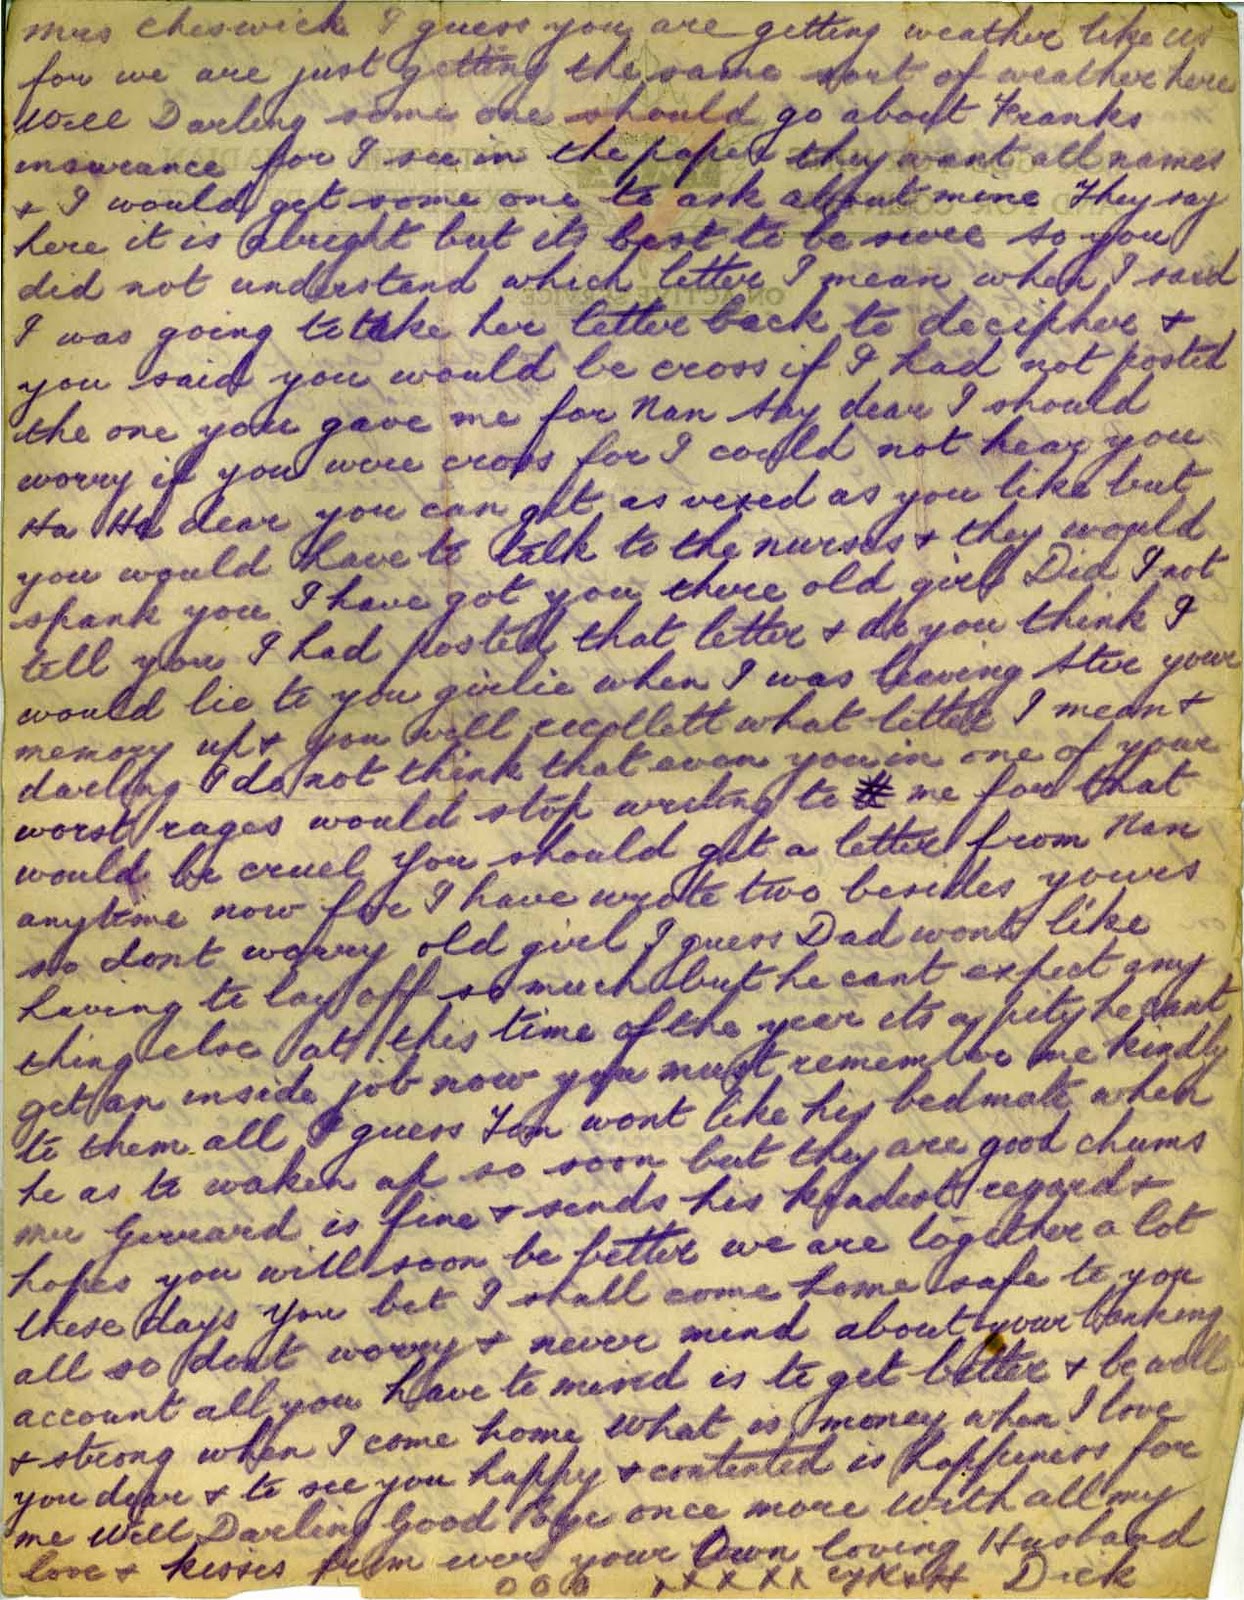 Mrs Cheswick I guess you are getting weather like us
for we are just getting the same sort of weather here
Well Darling some one should go about Franks
insurance for I see in the paper they want all names
& I would get some one to ask about mine They say
here it is alright but its best to be sure So you
did not understand which letter I mean when I said
I was going to take her letter back to decipher &
you said you would be cross if I had not posted
the one you gave me for Nan Say dear I should
worry if you were cross for I could not hear you
Ha Ha dear you can get as vexed as you like but
you would have to talk to the nurses & they would
spank you I have got you there old girl Did I not
tell you I had posted that letter & do you think I
would lie to you girlie when I was leaving Ster your
memory up & you will recollett what letter I mean &
darling I do not think that even you in one of your
worst rages would stop writing to me for that
would be cruel You should get a letter from Nan
anytime now for I have wrote two besides yours
so dont worry old girl I guess Dad wont like
having to lay off so much but he cant expect any
thing else at this time of the year its a pity he cant
get an inside job now you must remember me kindly
to them all I guess wont like his bedmate when
he as to waken up so soon but they are good chums
Mr Gerrard is fine & sends his kindest regards &
hopes you will soon be better we are together a lot
these days You bet I shall come home safe to you
all so dont worry & never mind about your Banking
account all you have to mind is to get better & be well
& strong when I come home What is money when I love
you dear & to see you happy & contented is happiness for
me Well Darling Good Bye once more with all my
love & kisses from ever your Own loving Husband
000 xxxxx Dick
ON ACTIVE SERVICE